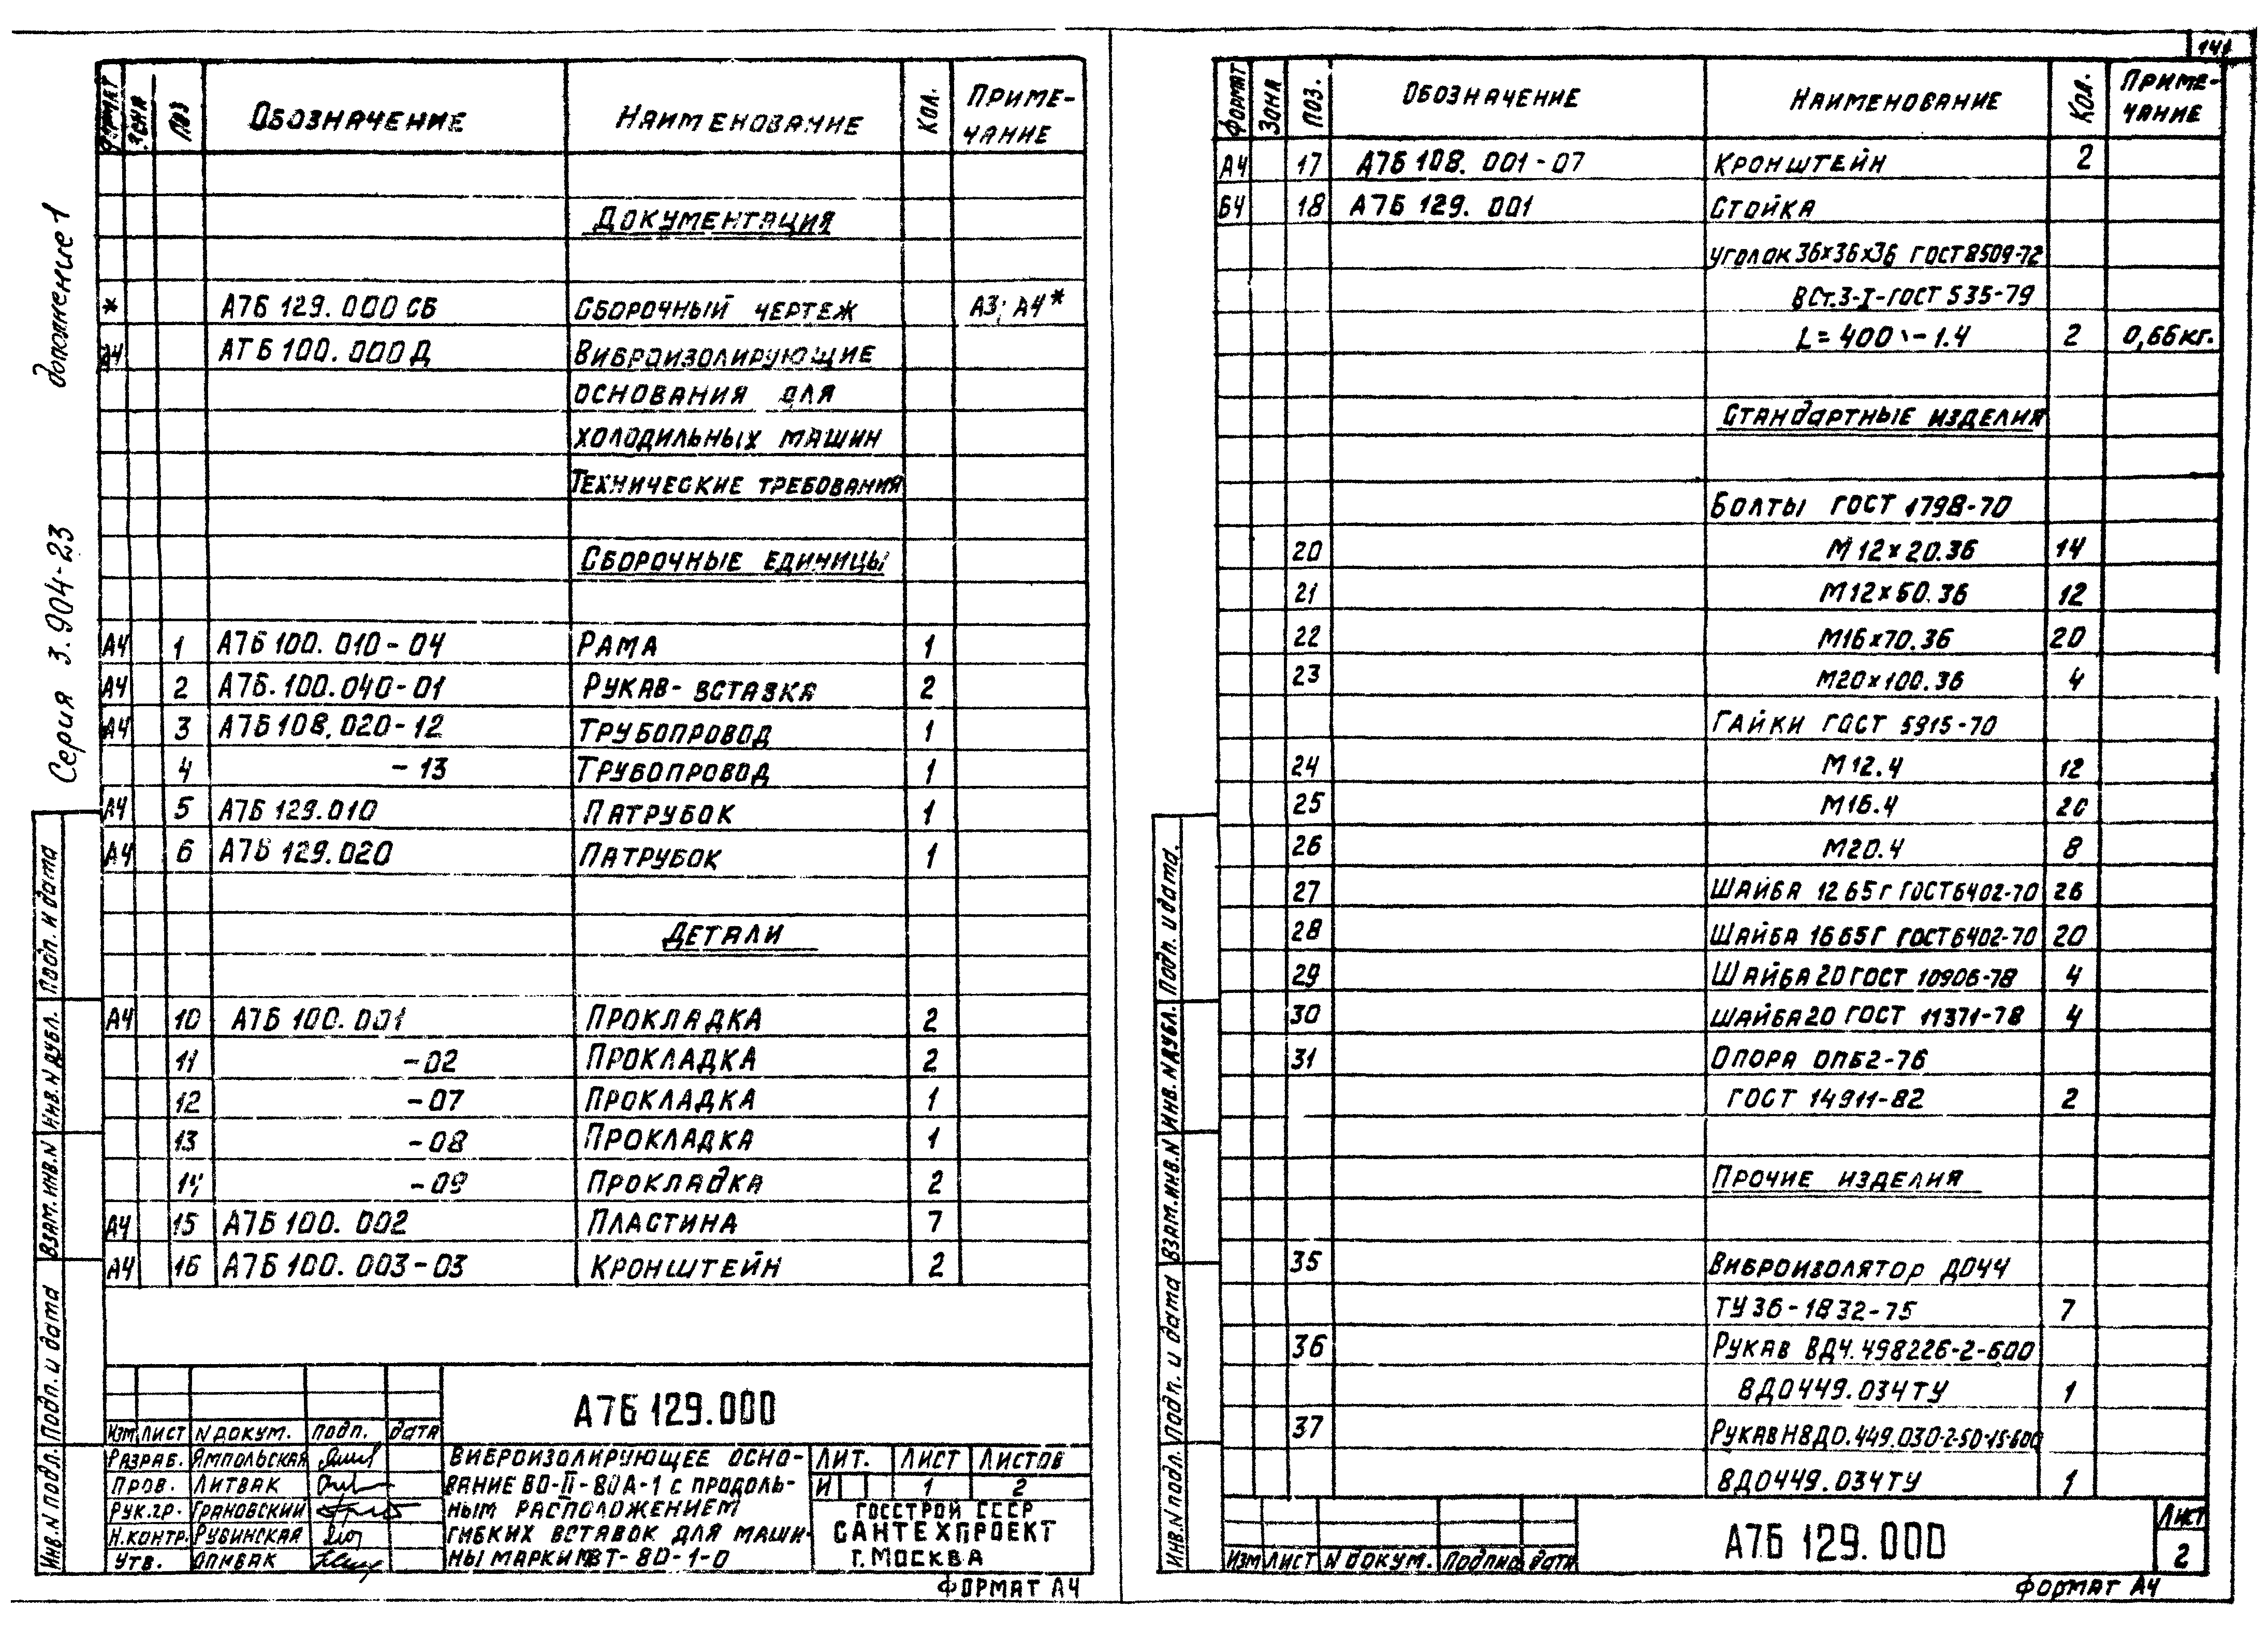 дополнение 1
Серия 3.904-23
ФОРМАТ ЗОНА ПОЗ ОБОЗНАЧЕНИЕ НАИМЕНОВАНИЕ КОЛ. ПРИМЕ-
ЧАНИЕ
ДОКУМЕНТАЦИЯ
* А7Б 129.000 СБ СБОРОЧНЫЙ ЧЕРТЕЖ А3; А4*
А4 АТБ 100.000Д ВИБРОИЗОЛИРУЮЩИЕ
ОСНОВАНИЯ ДЛЯ
ХОЛОДИЛЬНЫХ МАШИН
ТЕХНИЧЕСКИЕ ТРЕБОВАНИЯ
СБОРОЧНЫЕ ЕДИНИЦЫ
А4 1 А7Б 100.010-04 РАМА 1
А4 2 А7Б.100.040-01 РУКАВ-ВСТАВКА 2
А4 3 А7Б 108.020-12 ТРУБОПРОВОД 1
4 -13 ТРУБОПРОВОД 1
А4 5 А7Б 129.010 ПАТРУБОК 1
А4 6 А7Б 129.020 ПАТРУБОК 1
ДЕТАЛИ
А4 10 А7Б 100.001 ПРОКЛАДКА 2
11 -02 ПРОКЛАДКА 2
12 -07 ПРОКЛАДКА 1
13 -08 ПРОКЛАДКА 1
14 -09 ПРОКЛАДКА 2
А4 15 А7Б 100.002 ПЛАСТИНА 7
А4 16 А7Б 100.003-03 КРОНШТЕЙН 2
Инв.N подл. Подп. и дата ВЗАМ.ИНВ.N ИНВ.N ДУБЛ. Подп. и дата
А7Б 129.000
ИЗМ ЛИСТ N ДОКУМ. ПОДП. ДАТА
РАЗРАБ. ЯМПОЛЬСКАЯ
ПРОВ. ЛИТВАК
РУК.ГР. ГРАНОВСКИЙ
Н.КОНТР. РУБИНСКАЯ
УТВ. СПИВАК
ВИБРОИЗОЛИРУЮЩЕЕ ОСНО-
ВАНИЕ ВО-II-80А-1 С ПРОДОЛЬ-
НЫМ РАСПОЛОЖЕНИЕМ
ГИБКИХ ВСТАВОК ДЛЯ МАШИ-
НЫ МАРКИ МВТ-80-1-0
ЛИТ. ЛИСТ ЛИСТОВ
И 1 2
ГОССТРОЙ СССР
САНТЕХПРОЕКТ
Г.МОСКВА
ФОРМАТ А4
141
ФОРМАТ ЗОНА ПОЗ. ОБОЗНАЧЕНИЕ НАИМЕНОВАНИЕ КОЛ. ПРИМЕ-
ЧАНИЕ
А4 17 А7Б 108.001-07 КРОНШТЕЙН 2
БЧ 18 А7Б 129.001 СТОЙКА
УГОЛОК 36х36х36 ГОСТ 8509-72
ВСт.3-I-ГОСТ 535-79
L=400 -1.4 2 0,66 кг.
СТАНДАРТНЫЕ ИЗДЕЛИЯ
БОЛТЫ ГОСТ 1798-70
20 М12х20.36 14
21 М12х50.36 12
22 М16х70.36 20
23 М20х100.36 4
ГАЙКИ ГОСТ 5915-70
24 М12.4 12
25 М16.4 20
26 М20.4 8
27 ШАЙБА 12 65Г ГОСТ 6402-70 26
28 ШАЙБА 16 65Г ГОСТ 6402-70 20
29 ШАЙБА 20 ГОСТ 10906-78 4
30 ШАЙБА 20 ГОСТ 11371-78 4
31 ОПОРА ОПБ2-76
ГОСТ 14911-82 2
ПРОЧИЕ ИЗДЕЛИЯ
35 ВИБРОИЗОЛЯТОР ДО44
ТУ 36-1832-75 7
36 РУКАВ ВД4.498226-2-600
ВДО449.034ТУ 1
37 РУКАВ НВДО.449.030-2-50-15-600
ВДО449.034ТУ 1
ИНВ.N подл. Подп. и дата ВЗАМ.ИНВ.N ИНВ.N ДУБЛ. Подп. и дата.
ИЗМ ЛИСТ N ДОКУМ. Подпись дата
А7Б 129.000
ЛИСТ
2
ФОРМАТ А4